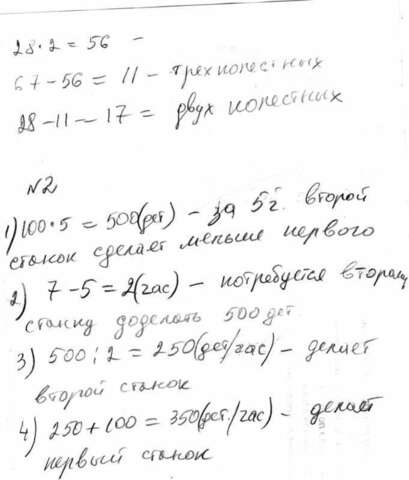 28 · 2 = 56 –
67 – 56 = 11 – трехместных
28 – 11 – 17 = двух местных
№2
1) 100 · 5 = 500 (дет) – за 5 ч. второй
станок сделает меньше первого
2) 7 – 5 = 2 (час) – потребуется второму
станку доделать 500 дет
3) 500 : 2 = 250 (дет/час) – делает
второй станок
4) 250 + 100 = 350 (дет./час) – делает
первый станок